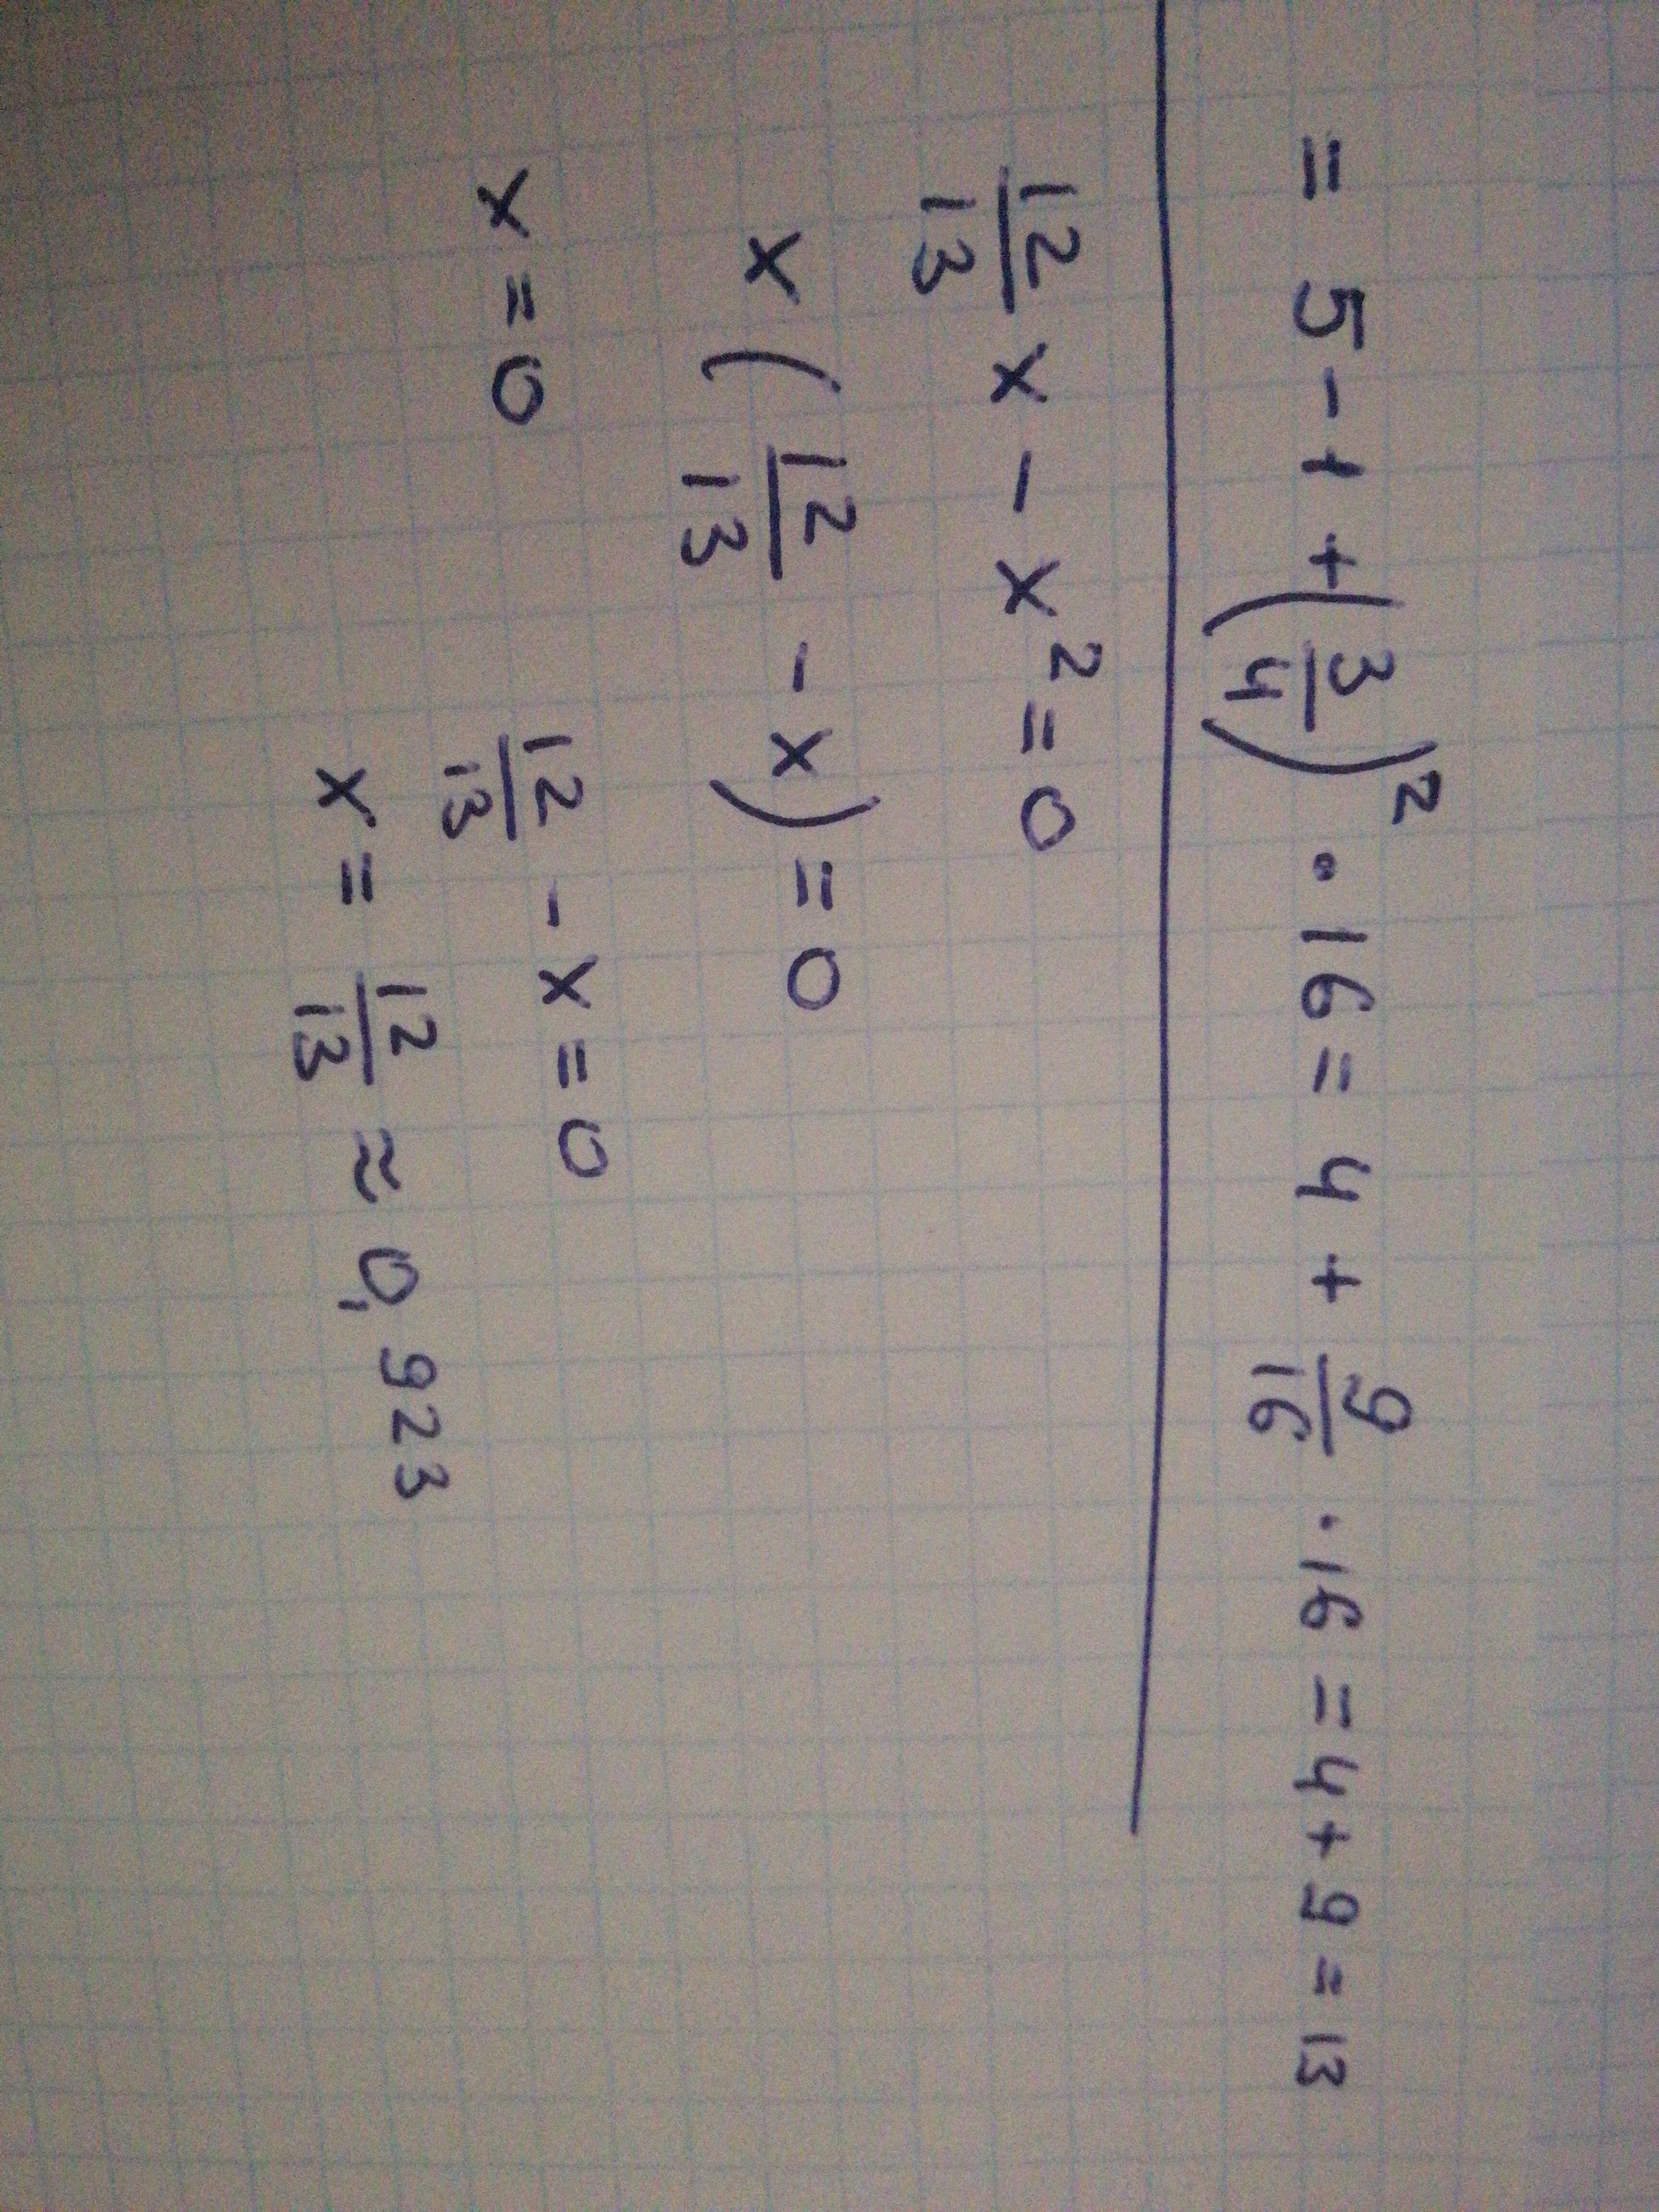 = 5 - 1 + (3/4)² · 16 = 4 + 9/16 · 16 = 4 + 9 = 13
12/13 x - x² = 0
x (12/13 - x) = 0
x = 0    12/13 - x = 0
x = 12/13 ≈ 0,923